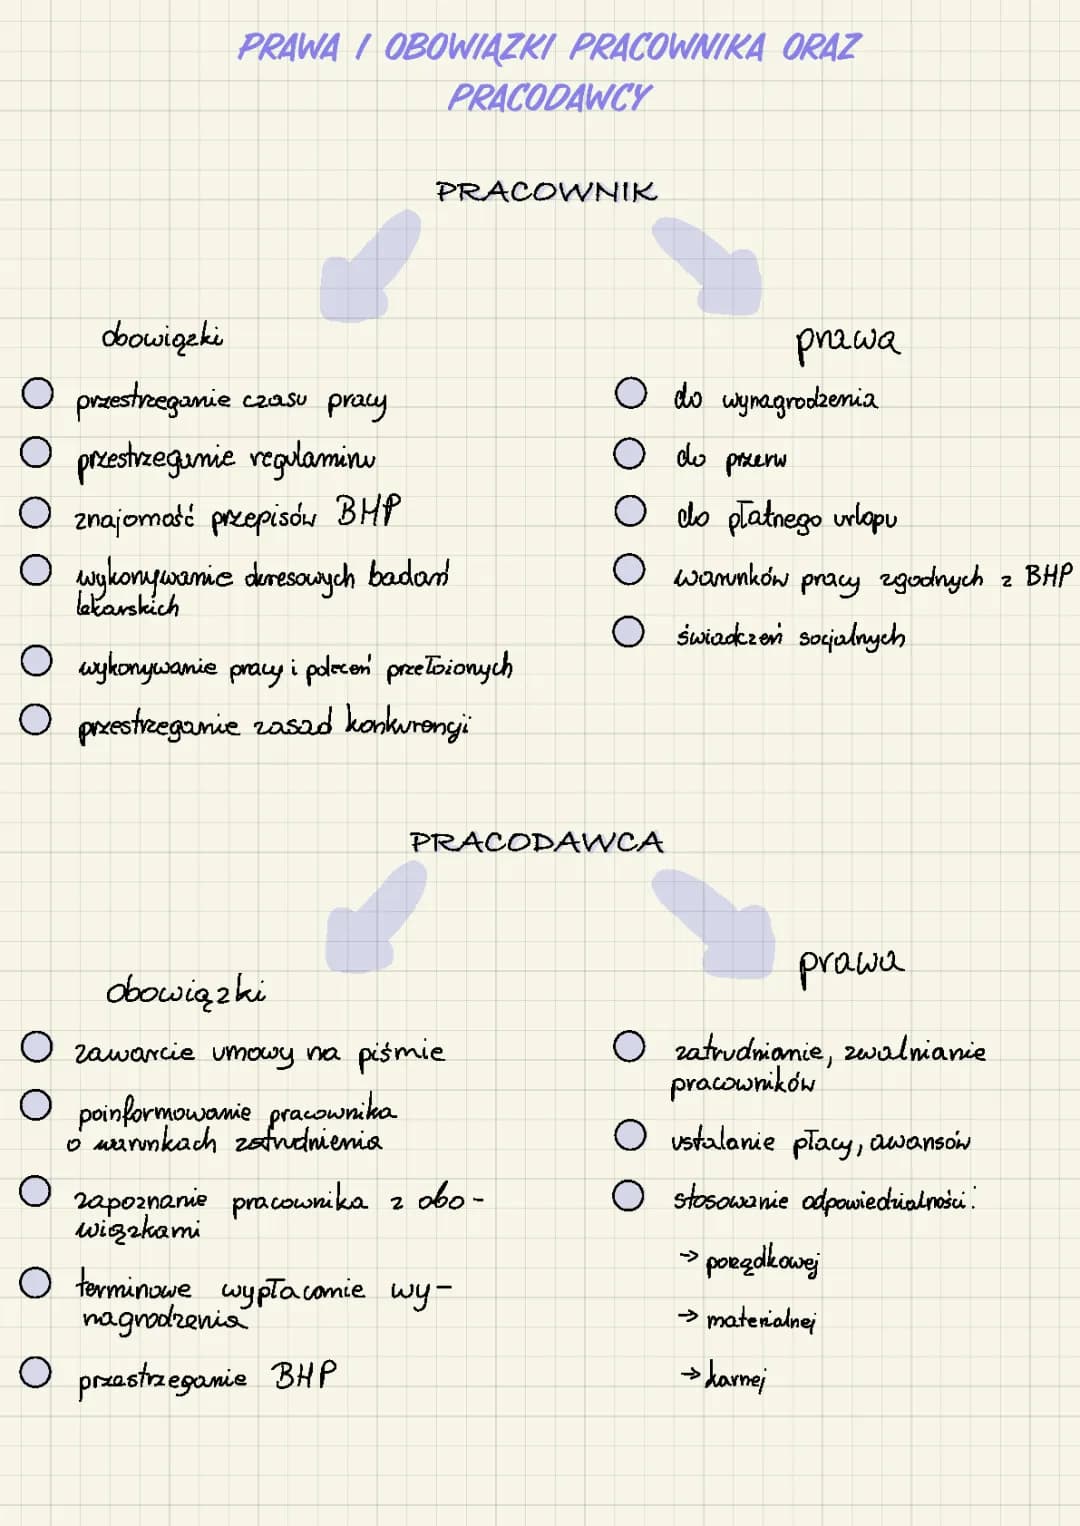 PRAWA I OBOWIĄZKI PRACOWNIKA ORAZ
PRACODAWCY
PRACOWNIK
obowiązki
przestrzeganie czasu pracy
przestrzeganie regulaminu
znajomość przepisów BHP
wykonywanie okresowych badań
lekarskich
wykonywanie pracy i poleceń przełożonych
przestrzeganie zasad konkurencji
prawa
do wynagrodzenia
do przerw
do płatnego urlopu
warunków pracy zgodnych z BHP
świadczeń socjalnych
PRACODAWCA
obowiązki
zawarcie umowy na piśmie
poinformowanie pracownika
o warunkach zatrudnienia
zapoznanie pracownika z obo-
wiązkami
terminowe wypłacanie wy-
nagrodzenia
przestrzeganie BHP
prawa
zatrudnianie, zwalnianie
pracowników
ustalanie płacy, awansów
stosowanie odpowiedzialności:
→ porządkowej
→ materialnej
→ karnej